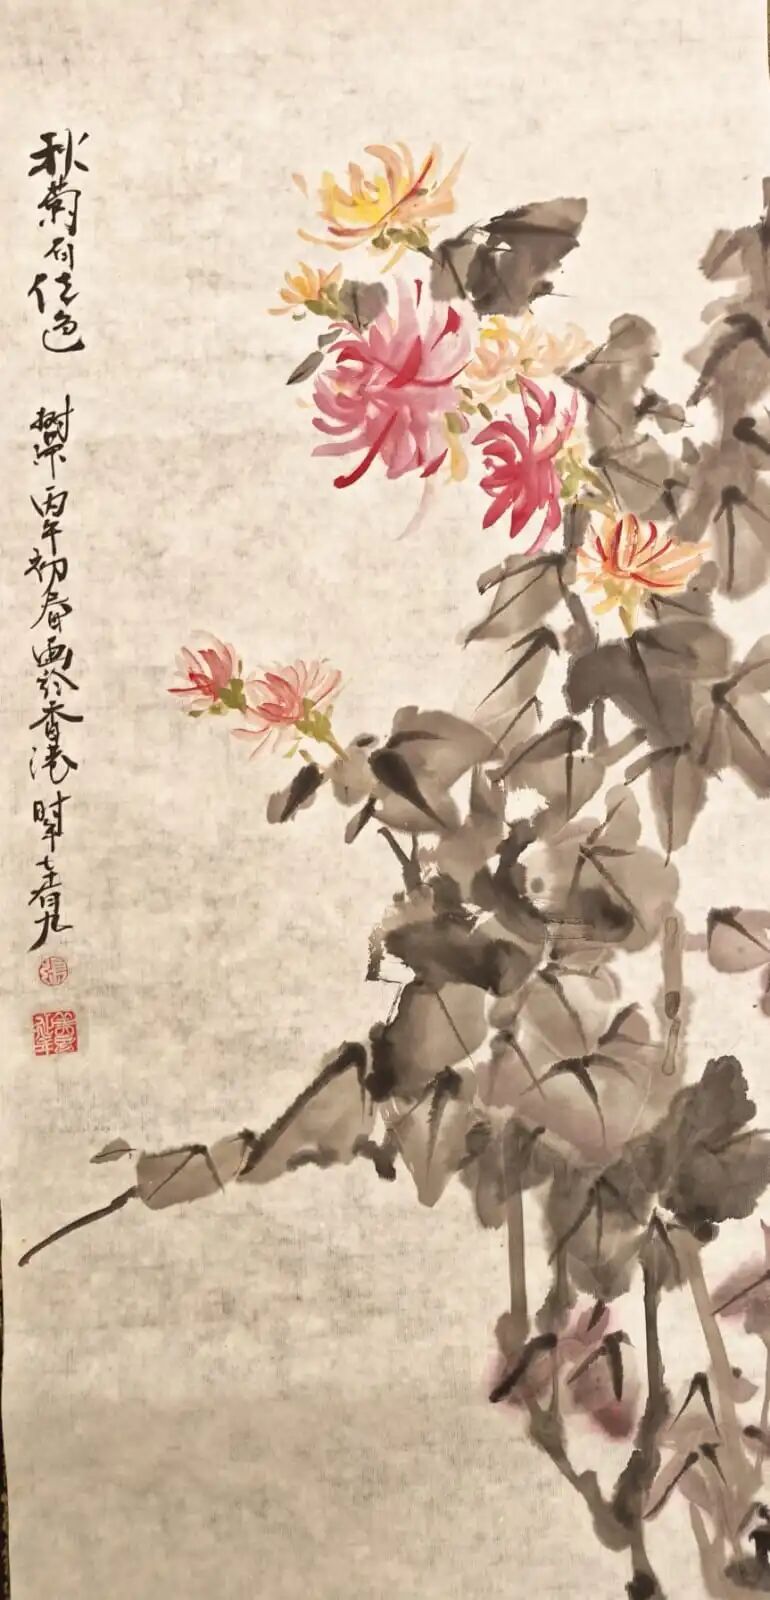 秋菊有佳色 樹 丙午初春画於香港 時年七十有九
張